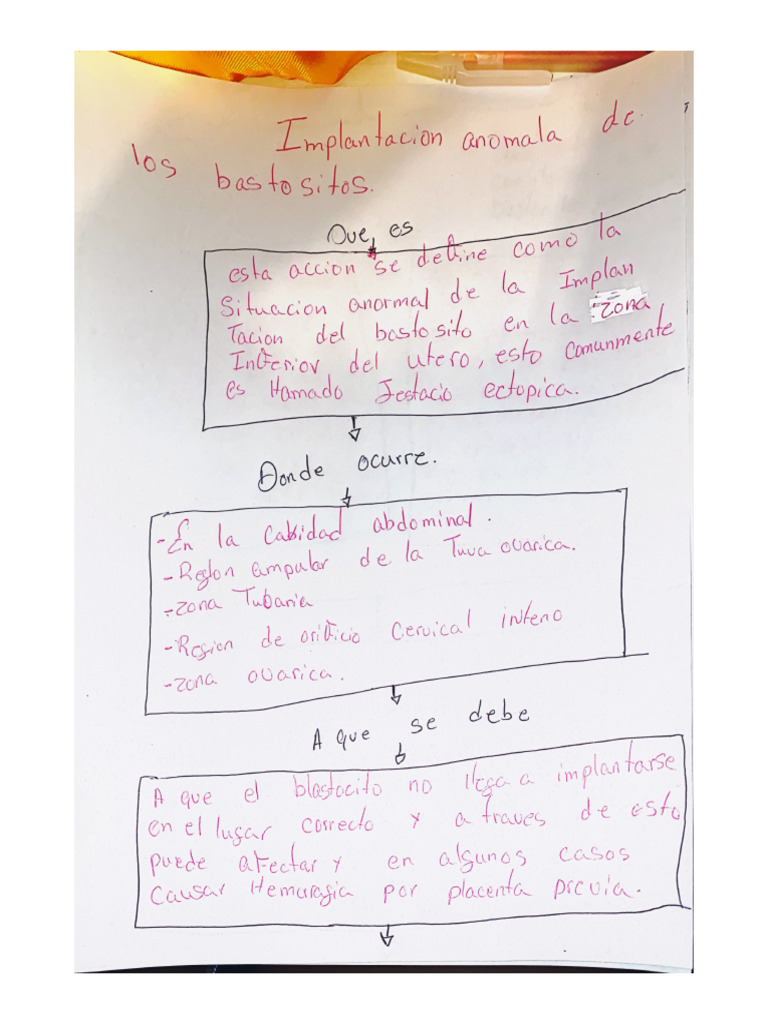 Implantacion anomala de
los bastositos.
Que es
esta accion se define como la
Situacion anormal de la Implan
Tacion del bastosito en la Zona
Inferior del utero, esto comunmente
es llamado Jestacio ectopica.
Donde ocurre.
-En la cabidad abdominal.
-Region ampular de la Tuva ovarica.
-zona Tubaria
-Region de orificio Cervical inteno
-zona ovarica.
A que se debe
A que el blastocito no llega a implantarse
en el lugar correcto y a traves de esto
puede afectar y en algunos casos
causar Hemuragia por placenta previa.